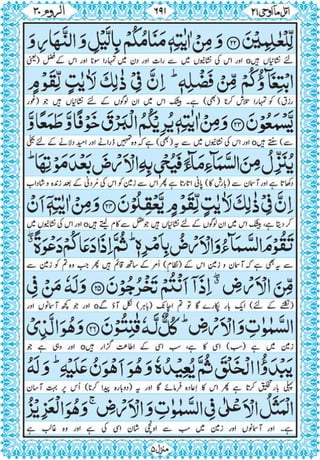 اتل مآ اوحی ۲۱ ۶۹۱ الروم ۳۰
لِّلْعٰلِمِیْنَ ﴿۲۲﴾ وَمِنْ اٰیٰتِهٖ مَنَامُكُمْ بِالَّیْلِ وَالنَّهَارِ وَ
لئے نشانیاں ہیںo اور اس کی نشانیوں میں سے رات اور دن میں تمہارا سونا اور اس کے فضل (یعنی
ابْتِغَآؤُكُمْ مِّنْ فَضْلِهٖ ؕ اِنَّ فِیْ ذٰلِكَ لَاٰیٰتٍ لِّقَوْمٍ
رزق) کو تمہارا تلاش کرنا (بھی) ہے۔ بیشک اس میں ان لوگوں کے لئے نشانیاں ہیں جو (غور
یَّسْمَعُوْنَ ﴿۲۳﴾ وَمِنْ اٰیٰتِهٖ یُرِیْكُمُ الْبَرْقَ خَوْفًا وَّطَمَعًا وَّ
سے) سنتے ہیںo اور اس کی نشانیوں میں سے یہ (بھی) ہے کہ وہ تمہیں ڈرانے اور امید دلانے کے لئے بجلی
یُنَزِّلُ مِنَ السَّمَآءِ مَآءً فَیُحْیٖ بِهِ الْاَرْضَ بَعْدَ مَوْتِهَا ؕ
دکھاتا ہے اور آسمان سے (بارش کا) پانی اتارتا ہے پھر اس سے زمین کو اس کی مُردنی کے بعد زندہ و شاداب
اِنَّ فِیْ ذٰلِكَ لَاٰیٰتٍ لِّقَوْمٍ یَّعْقِلُوْنَ ﴿۲۴﴾ وَمِنْ اٰیٰتِهٖۤ اَنْ
کر دیتا ہے، بیشک اس میں ان لوگوں کے لئے نشانیاں ہیں جو عقل سے کام لیتے ہیںo اور اس کی نشانیوں میں
تَقُوْمَ السَّمَآءُ وَالْاَرْضُ بِاَمْرِهٖ ؕ ثُمَّ اِذَا دَعَاكُمْ دَعْوَةً ۖۗ
سے یہ بھی ہے کہ آسمان و زمین اس کے (نظامِ) اَمر کے ساتھ قائم ہیں پھر جب وہ تم کو زمین سے
مِّنَ الْاَرْضِ ۖۗ اِذَاۤ اَنْتُمْ تَخْرُجُوْنَ ﴿۲۵﴾ وَلَهٗ مَنْ فِی
(نکلنے کے لئے) ایک بار پکارے گا تو تم اچانک (باہر) نکل آؤ گےo اور جو کچھ آسمانوں اور
السَّمٰوٰتِ وَالْاَرْضِ ؕ كُلٌّ لَّهٗ قٰنِتُوْنَ ﴿۲۶﴾ وَهُوَ الَّذِیْ
زمین میں ہے (سب) اسی کا ہے، سب اسی کے اطاعت گزار ہیںo اور وہی ہے جو
یَبْدَؤُا الْخَلْقَ ثُمَّ یُعِیْدُهٗ وَهُوَ اَهْوَنُ عَلَیْهِ ؕ وَلَهُ
پہلی بار تخلیق کرتا ہے پھر اس کا اِعادہ فرمائے گا اور یہ (دوبارہ پیدا کرنا) اُس پر بہت آسان
الْمَثَلُ الْاَعْلٰی فِی السَّمٰوٰتِ وَالْاَرْضِ ۚ وَهُوَ الْعَزِیْزُ
ہے۔ اور آسمانوں اور زمین میں سب سے اونچی شان اسی کی ہے، اور وہ غالب ہے
منزل ۵